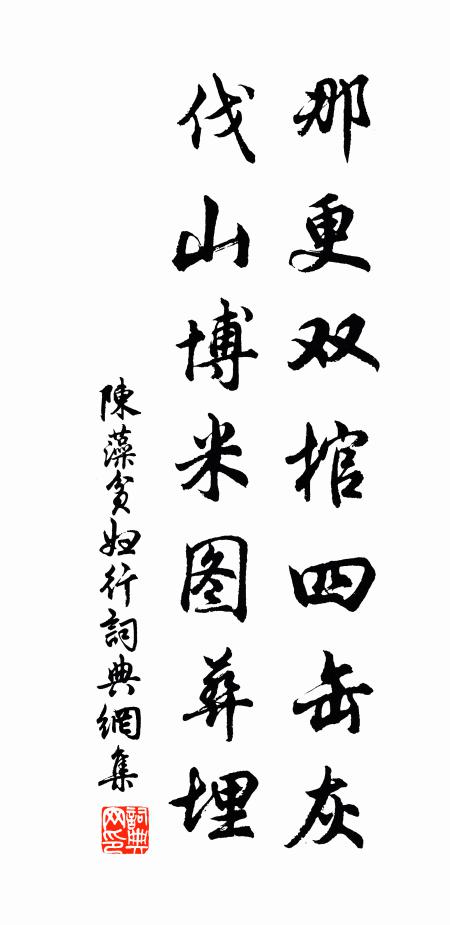 那更双棺四缶灰
伐山博米图葬埋
陳藻贫妇行詞典網集
詞典网印